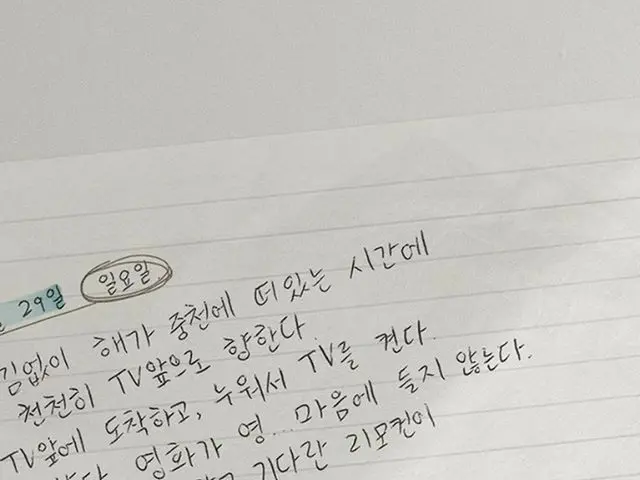 29일 일요일
김없이 해가 중천에 떠있는 시간에
천천히 TV앞으로 향한다.
TV앞에 도착하고, 누워서 TV를 켠다.
영화가 영... 마음에 들지 않는다.
기다란 리모컨이